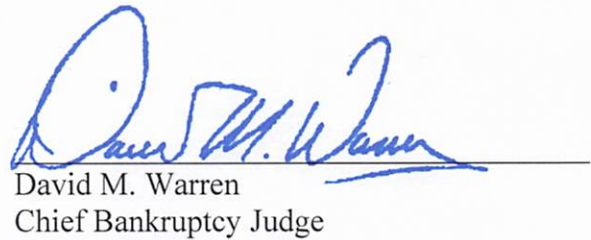 David M. Warren
David M. Warren
Chief Bankruptcy Judge